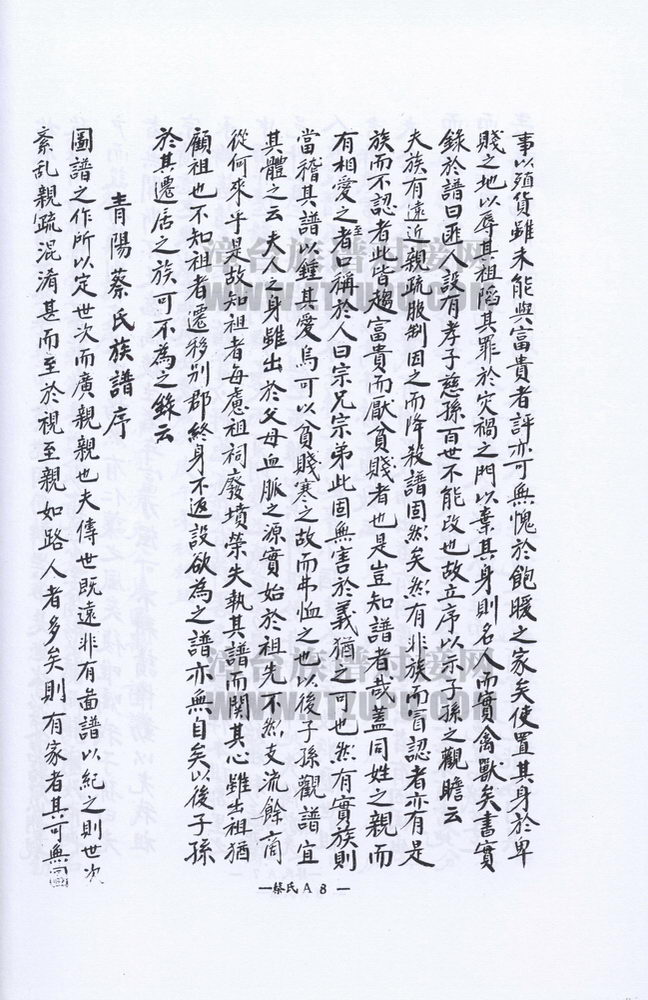 事以殖貨雖未能與富貴者評亦可無愧於飽暖之家矣使置其身於卑
賤之地以辱其祖陷其罪於灾禍之門以棄其身則名人而實禽獸矣書實
錄於譜曰匪人設有孝子慈孫百世不能改也故立序以示子孫之觀瞻云
夫族有遠近親疏服制因之而降殺譜固然矣然有非族而冒認者亦有是
族而不認者此皆趨富貴而厭貧賤者也是豈知譜者哉蓋同姓之親而
有相愛之至者口稱於人曰宗兄宗弟此固無害於義猶之可也然有實族則
當稽其譜以鍾其愛烏可以貧賤寒之故而弗恤之也以後子孫觀譜宜
其體之云夫人之身雖出於父母血脈之源實始於祖先不然支流餘裔
從何來乎是故知祖者每慮祖祠廢墳塋失執其譜而関其心雖出祖猶
顧祖也不知祖者遷移別郡終身不返設欲為之譜亦無自矣以後子孫
於其遷居之族可不為之錄云
青陽蔡氏族譜序
圖譜之作所以定世次而廣親親也夫傳世既遠非有啚譜以紀之則世次
紊乱親疏混淆甚而至於視至親如路人者多矣則有家者其可無圖
—蔡氏A8—
灣台族譜对接网
WWW.TTZUPU.COM
灣台族譜对接网
WWW.TTZUPU.COM